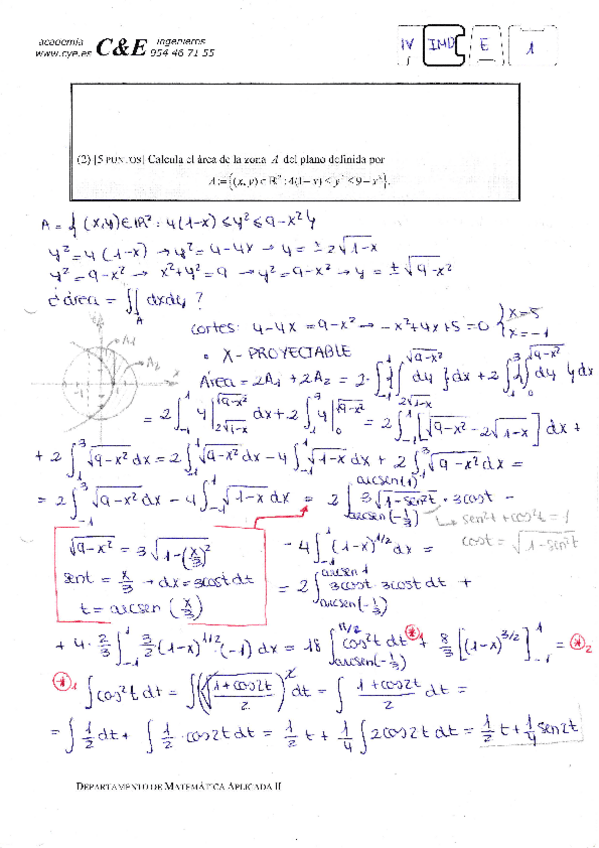 academia C&E ingenieros
www.cye.es 954 46 71 55
IV IMD E 1
(2) [5 PUNTOS] Calcula el área de la zona A del plano definida por
A := {(x, y) ∈ ℝ² : 4(1−x) ≤ y² ≤ 9−x²}.
A = { (x,y) ∈ ℝ² : 4(1-x) ≤ y² ≤ 9-x² }
y² = 4(1-x) → y² = 4-4x → y = ± 2√(1-x)
y² = 9-x² → x²+y² = 9 → y² = 9-x² → y = ± √(9-x²)
¿ área = ∬_A dxdy ?
cortes: 4-4x = 9-x² → -x²+4x+5=0 { x=5 x=-1
A1
A2
• X-PROYECTABLE
Área = 2A1 + 2A2 = 2·∫_{-1}^{1} { ∫_{2√(1-x)}^{√(9-x²)} dy } dx + 2∫_{1}^{3} { ∫_{0}^{√(9-x²)} dy } dx
= 2∫_{-1}^{1} y|_{2√(1-x)}^{√(9-x²)} dx + 2∫_{1}^{3} y|_{0}^{√(9-x²)} = 2∫_{-1}^{1} [√(9-x²) - 2√(1-x)] dx +
+ 2∫_{1}^{3} √(9-x²) dx = 2∫_{-1}^{1} √(9-x²) dx - 4∫_{-1}^{1} √(1-x) dx + 2∫_{1}^{3} √(9-x²) dx =
= 2∫_{-1}^{3} √(9-x²) dx - 4∫_{-1}^{1} √(1-x) dx = 2∫_{arcsen(-1/3)}^{arcsen(1)} 3√(1-sen²t) · 3cost -
sen²t + cos²t = 1
cost = √(1-sen²t)
√(9-x²) = 3√(1-(x/3)²)
sent = x/3 → dx = 3cost dt
t = arcsen (x/3)
- 4∫_{-1}^{1} (1-x)^{1/2} dx =
= 2∫_{arcsen(-1/3)}^{arcsen 1} 3cost · 3cost dt +
+ 4 · 2/3 ∫_{-1}^{1} 3/2 (1-x)^{1/2} (-1) dx = 18 ∫_{arcsen(-1/3)}^{π/2} cos²t dt *1 + 8/3 [(1-x)^{3/2}]_{-1}^{1} = *2
*1 ∫cos²t dt = ∫(√((1+cos2t)/2))² dt = ∫ (1+cos2t)/2 dt =
= ∫ 1/2 dt + ∫ 1/2 · cos2t dt = 1/2 t + 1/4 ∫ 2cos2t dt = 1/2 t + 1/4 sen2t
DEPARTAMENTO DE MATEMÁTICA APLICADA II